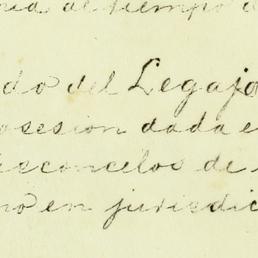 al tiempo
do del Legajo
sesion dada e
sconcelos de
no en jurisdic